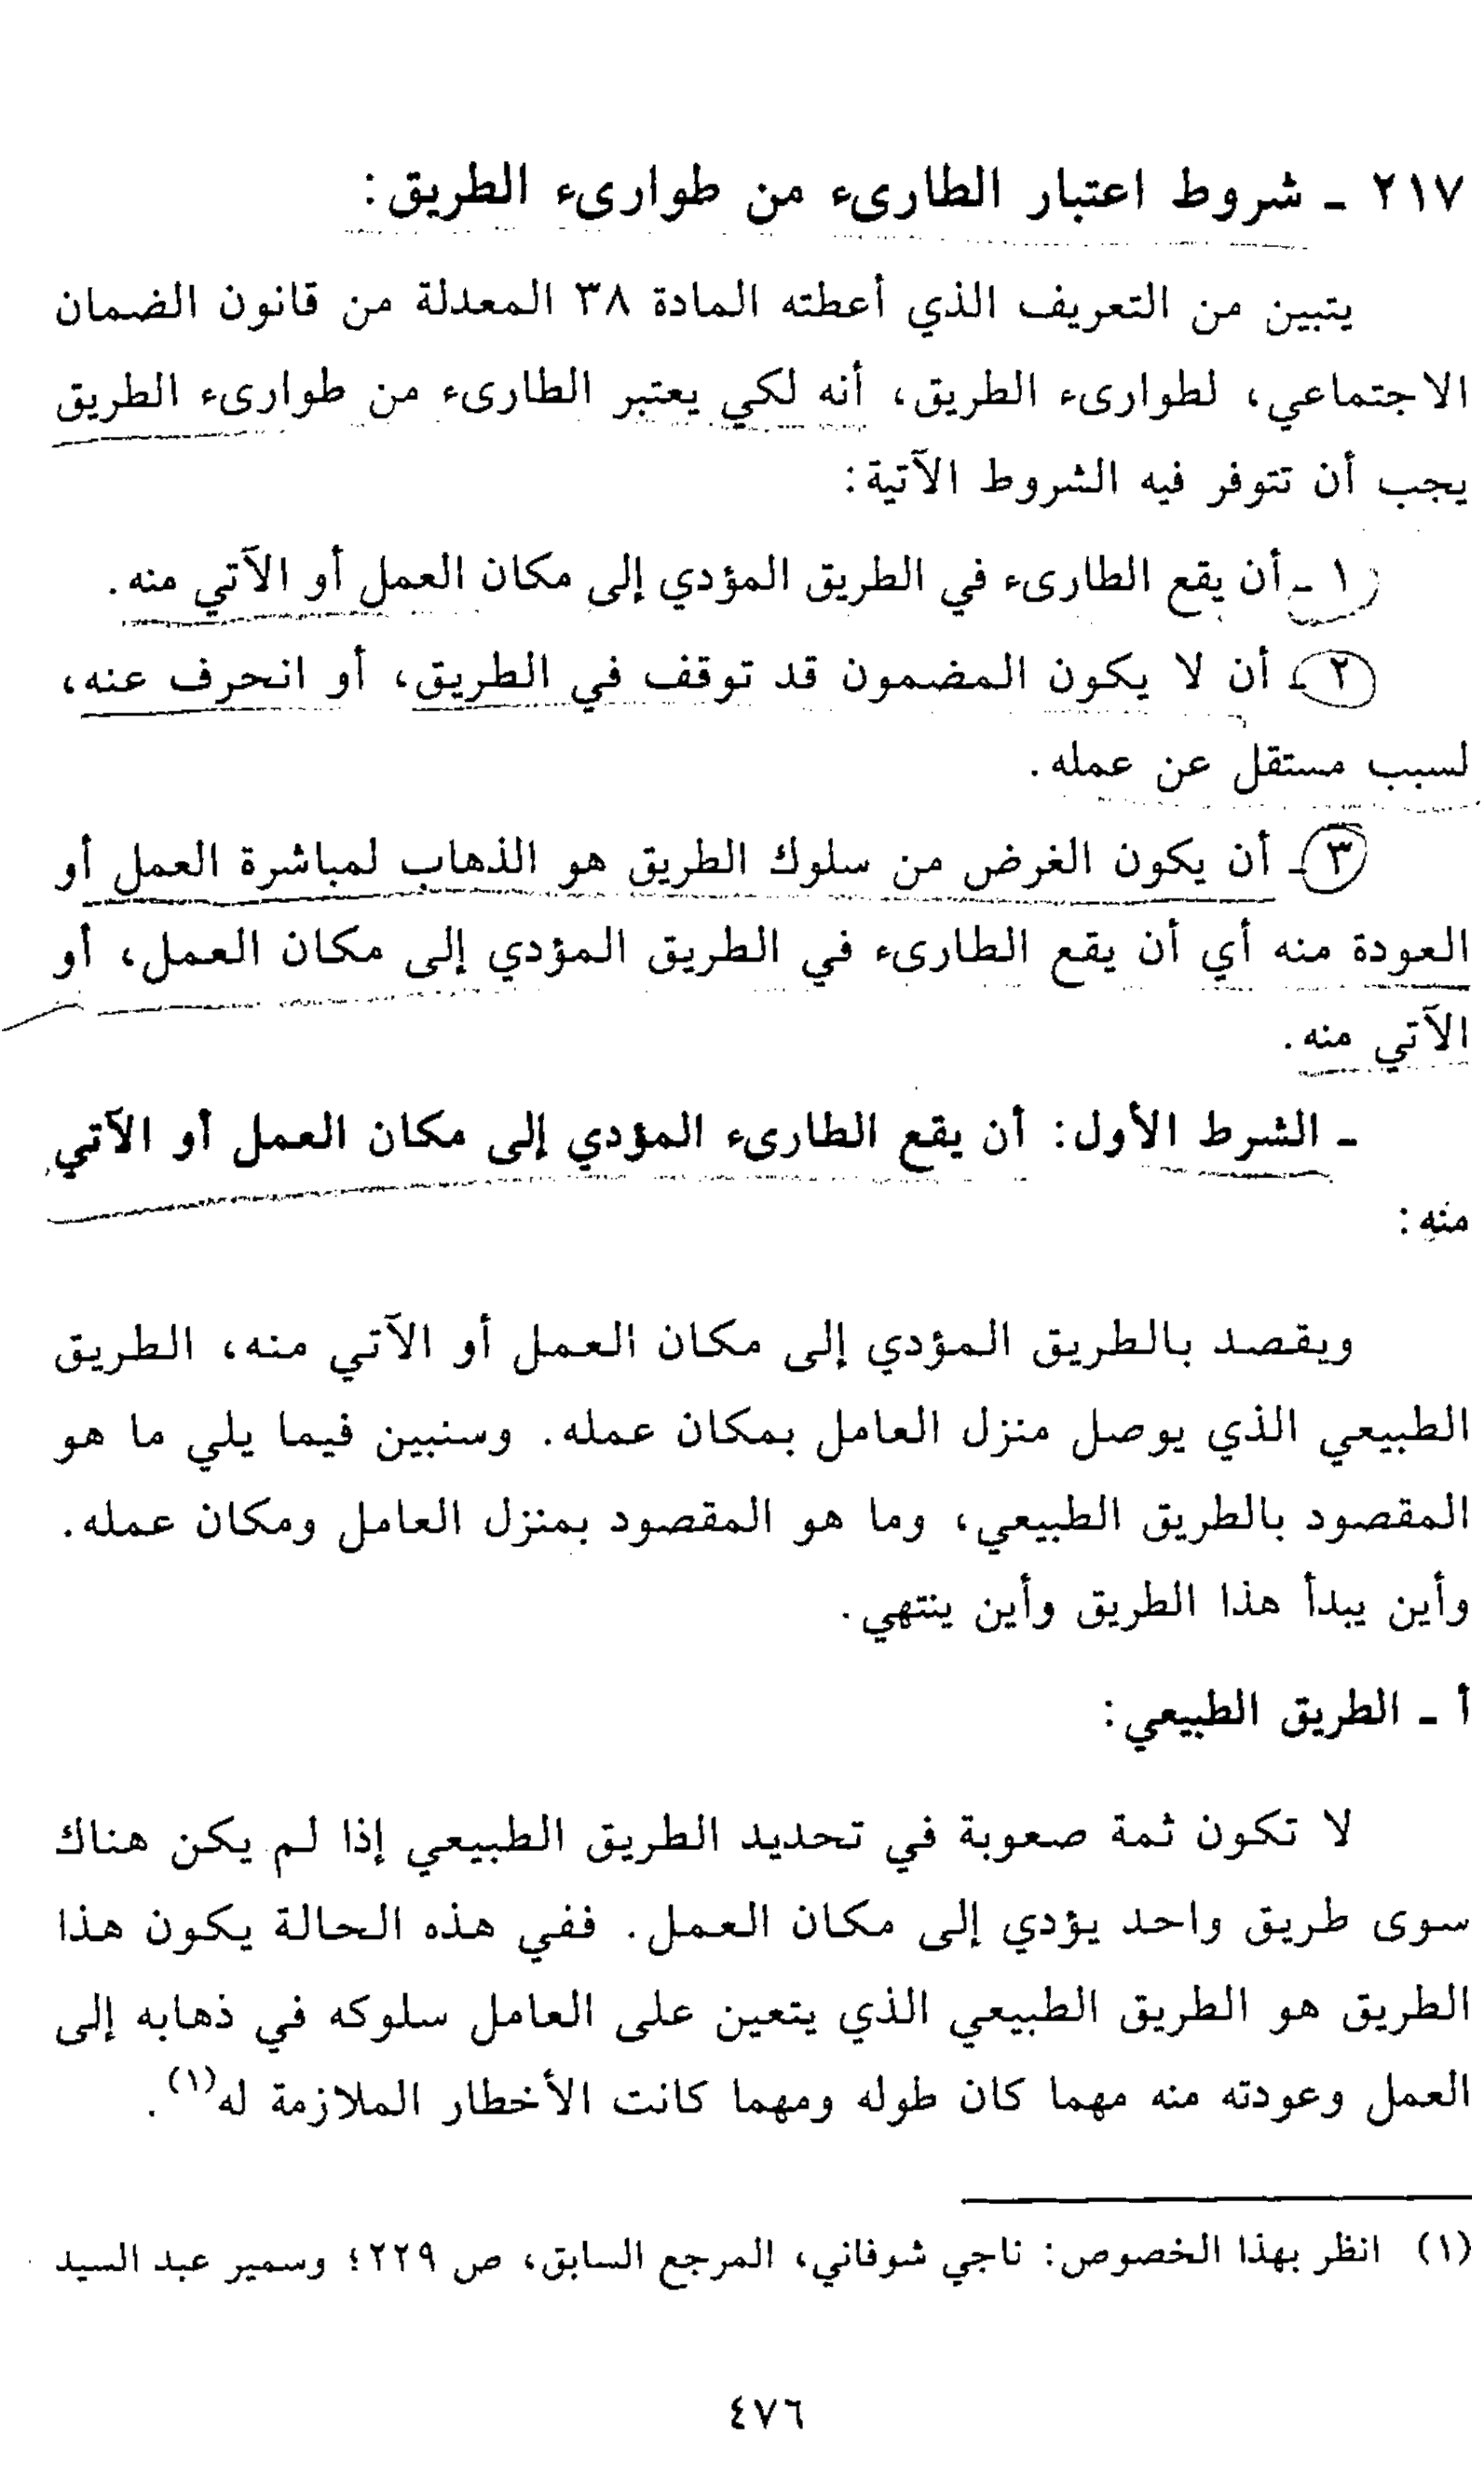 ٢١٧ ـ شروط اعتبار الطارىء من طوارىء الطريق:
يتبين من التعريف الذي أعطته المادة ٣٨ المعدلة من قانون الضمان
الاجتماعي، لطوارىء الطريق، أنه لكي يعتبر الطارىء من طوارىء الطريق
يجب أن تتوفر فيه الشروط الآتية:
١ ـ أن يقع الطارىء في الطريق المؤدي إلى مكان العمل أو الآتي منه.
٢ ـ أن لا يكون المضمون قد توقف في الطريق، أو انحرف عنه،
لسبب مستقل عن عمله.
٣ ـ أن يكون الغرض من سلوك الطريق هو الذهاب لمباشرة العمل أو
العودة منه أي أن يقع الطارىء في الطريق المؤدي إلى مكان العمل، أو
الآتي منه.
ـ الشرط الأول: أن يقع الطارىء المؤدي إلى مكان العمل أو الآتي
منه:
ويقصد بالطريق المؤدي إلى مكان العمل أو الآتي منه، الطريق
الطبيعي الذي يوصل منزل العامل بمكان عمله. وسنبين فيما يلي ما هو
المقصود بالطريق الطبيعي، وما هو المقصود بمنزل العامل ومكان عمله.
وأين يبدأ هذا الطريق وأين ينتهي.
أ ـ الطريق الطبيعي:
لا تكون ثمة صعوبة في تحديد الطريق الطبيعي إذا لم يكن هناك
سوى طريق واحد يؤدي إلى مكان العمل. ففي هذه الحالة يكون هذا
الطريق هو الطريق الطبيعي الذي يتعين على العامل سلوكه في ذهابه إلى
العمل وعودته منه مهما كان طوله ومهما كانت الأخطار الملازمة له(١).
(١) انظر بهذا الخصوص: ناجي شوفاني، المرجع السابق، ص ٢٢٩؛ وسمير عبد السيد
٤٧٦